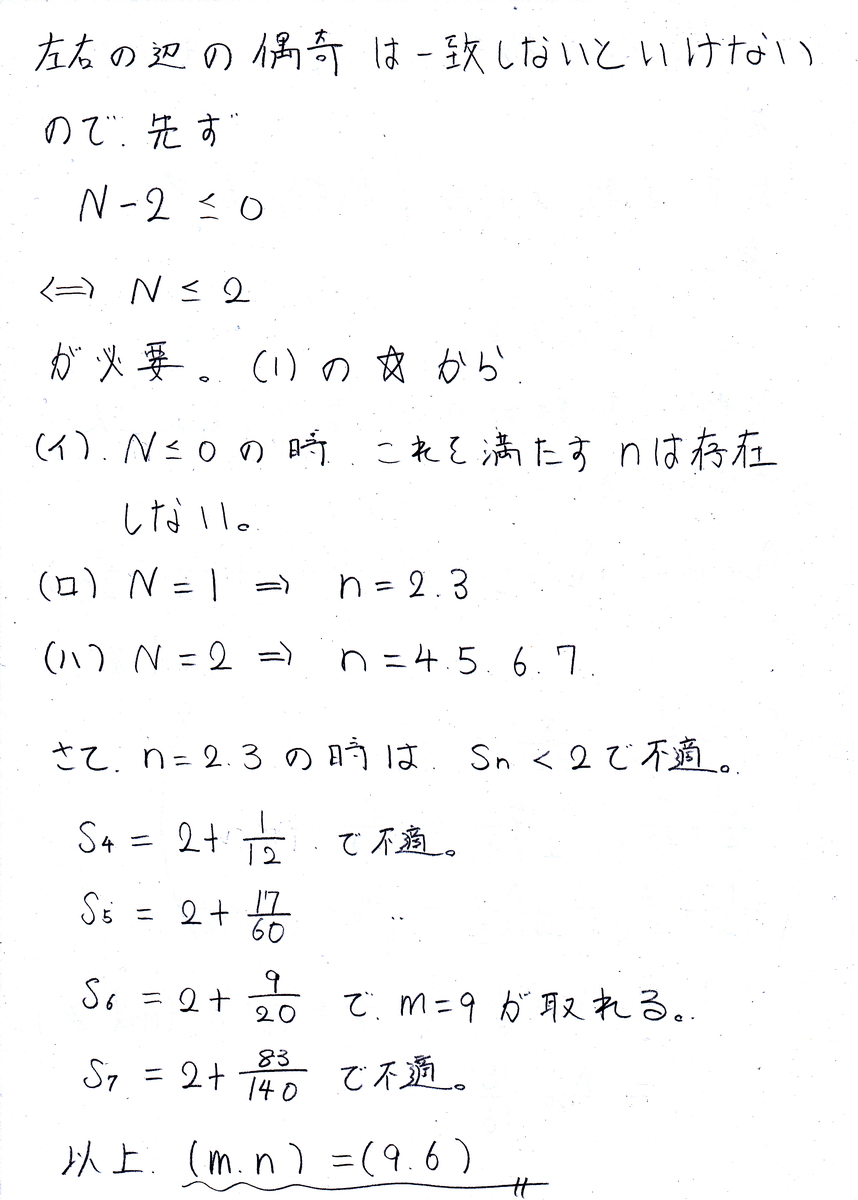 左右の辺の偶奇は一致しないといけない
ので、先ず
N-2 ≤ 0
⇔ N ≤ 2
が必要。(1)の☆から、
(イ). N≤0の時、これを満たすnは存在
しない。
(ロ) N=1 ⇒ n=2.3
(ハ) N=2 ⇒ n=4.5.6.7.
さて、n=2.3の時は、Sn<2で不適。
S4 = 2+1/12 で不適。
S5 = 2+17/60 〃
S6 = 2+9/20 で、m=9が取れる。
S7 = 2+83/140 で不適。
以上、(m.n)=(9.6)